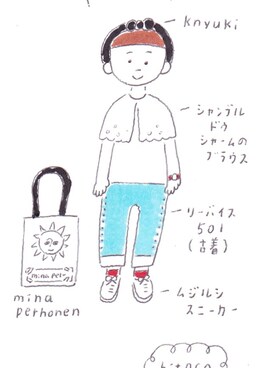 knyuki
シャンブル
ドゥ
シャームの
ブラウス
リーバイス
501
(古着)
ムジルシ
スニーカー
mina per
mina
perhonen